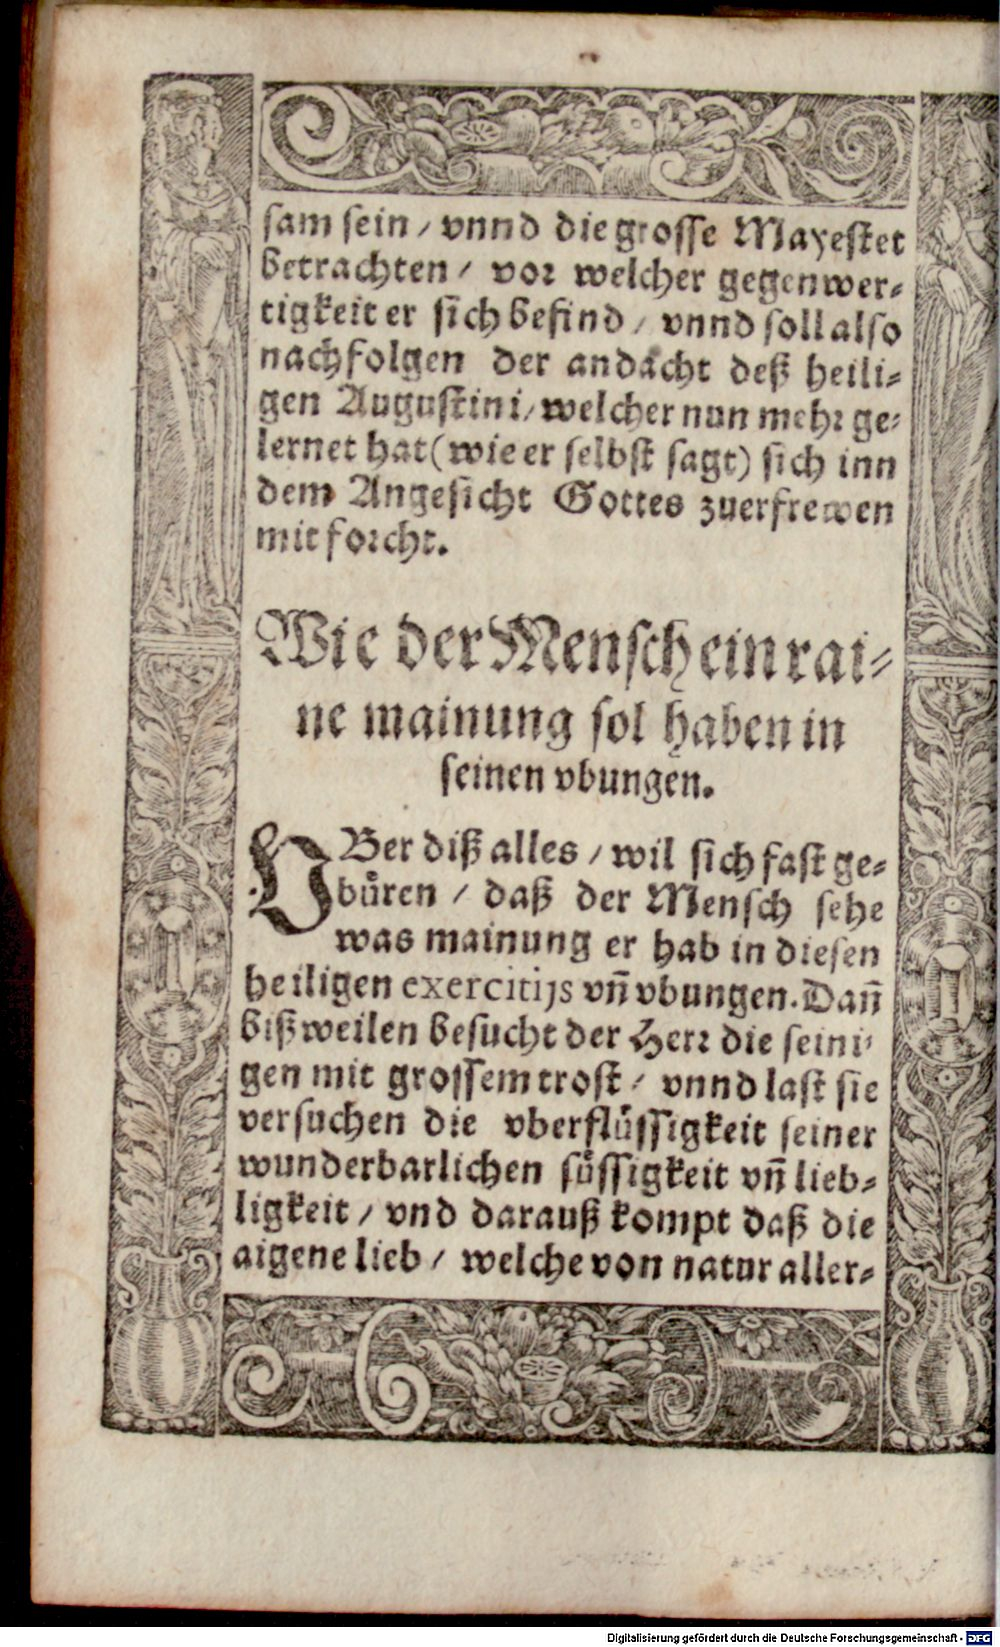 sam sein / vnnd die grosse Mayestet
betrachten / vor welcher gegenwer⸗
tigkeit er sich befind / vnnd soll also
nachfolgen der andacht deß heili⸗
gen Augustini / welcher nun mehr ge⸗
lernet hat (wie er selbst sagt) sich inn
dem Angesicht Gottes zuerfrewen
mit forcht.
Wie der Mensch ein rai⸗
ne mainung sol haben in
seinen vbungen.
VBer diß alles / wil sich fast ge⸗
buͤren / daß der Mensch sehe
was mainung er hab in diesen
heiligen exercitijs vñ vbungen. Dañ
bißweilen besucht der Herr die seini⸗
gen mit grossem trost / vnnd last sie
versuchen die vberfluͤssigkeit seiner
wunderbarlichen suͤssigkeit vñ lieb⸗
ligkeit / vnd darauß kompt daß die
aigene lieb / welche von natur aller⸗
Digitalisierung gefördert durch die Deutsche Forschungsgemeinschaft - DFG